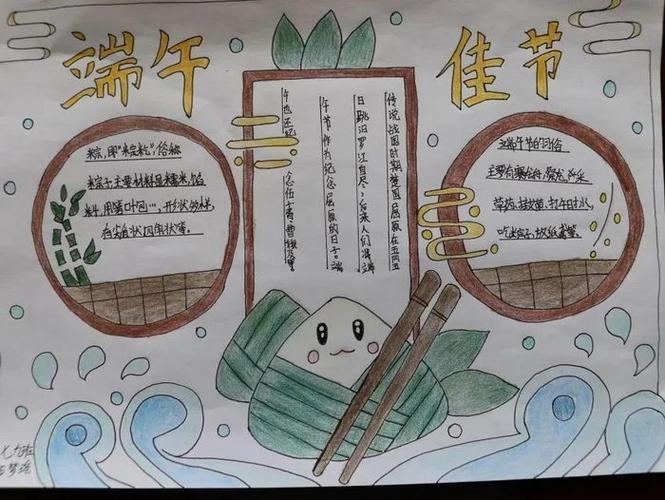 端午
佳节
粽,即"粽籺",俗称
粽子,主要材料是糯米、馅
料,用箬叶包…,形状多样,
有尖角状、四角状等。
传说战国时期楚国屈原在五月五
日跳汨罗江自尽,后来人们将端
午节作为纪念屈原的日子。端
午也还纪念伍子胥、曹娥及
端午节的习俗
主要有赛龙舟,
草药,挂艾草,打午时水,
吃粽子,放纸鸢等。